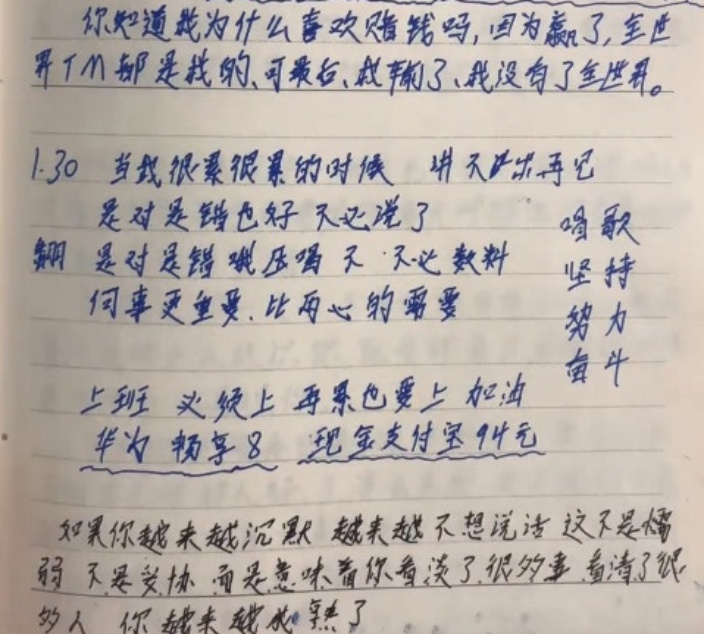 你知道我为什么喜欢赌钱吗,因为赢了,全世
界TM都是我的、可最后、我输了、我没有了全世界。
1.30 当我很累很累的时候 讲不出再见
是对是错也好 不必说了
唱歌
是对是错 不 不必
坚持
何事更重要、比两心的需要
努力
奋斗
上班 必须上 再累也要上 加油
华为 畅享8 现金支付宝94元
如果你越来越沉默 越来越不想说话 这不是懦
弱 不是妥协 而是意味着你看淡了很多事 看清了很
多人 你越来越成熟了